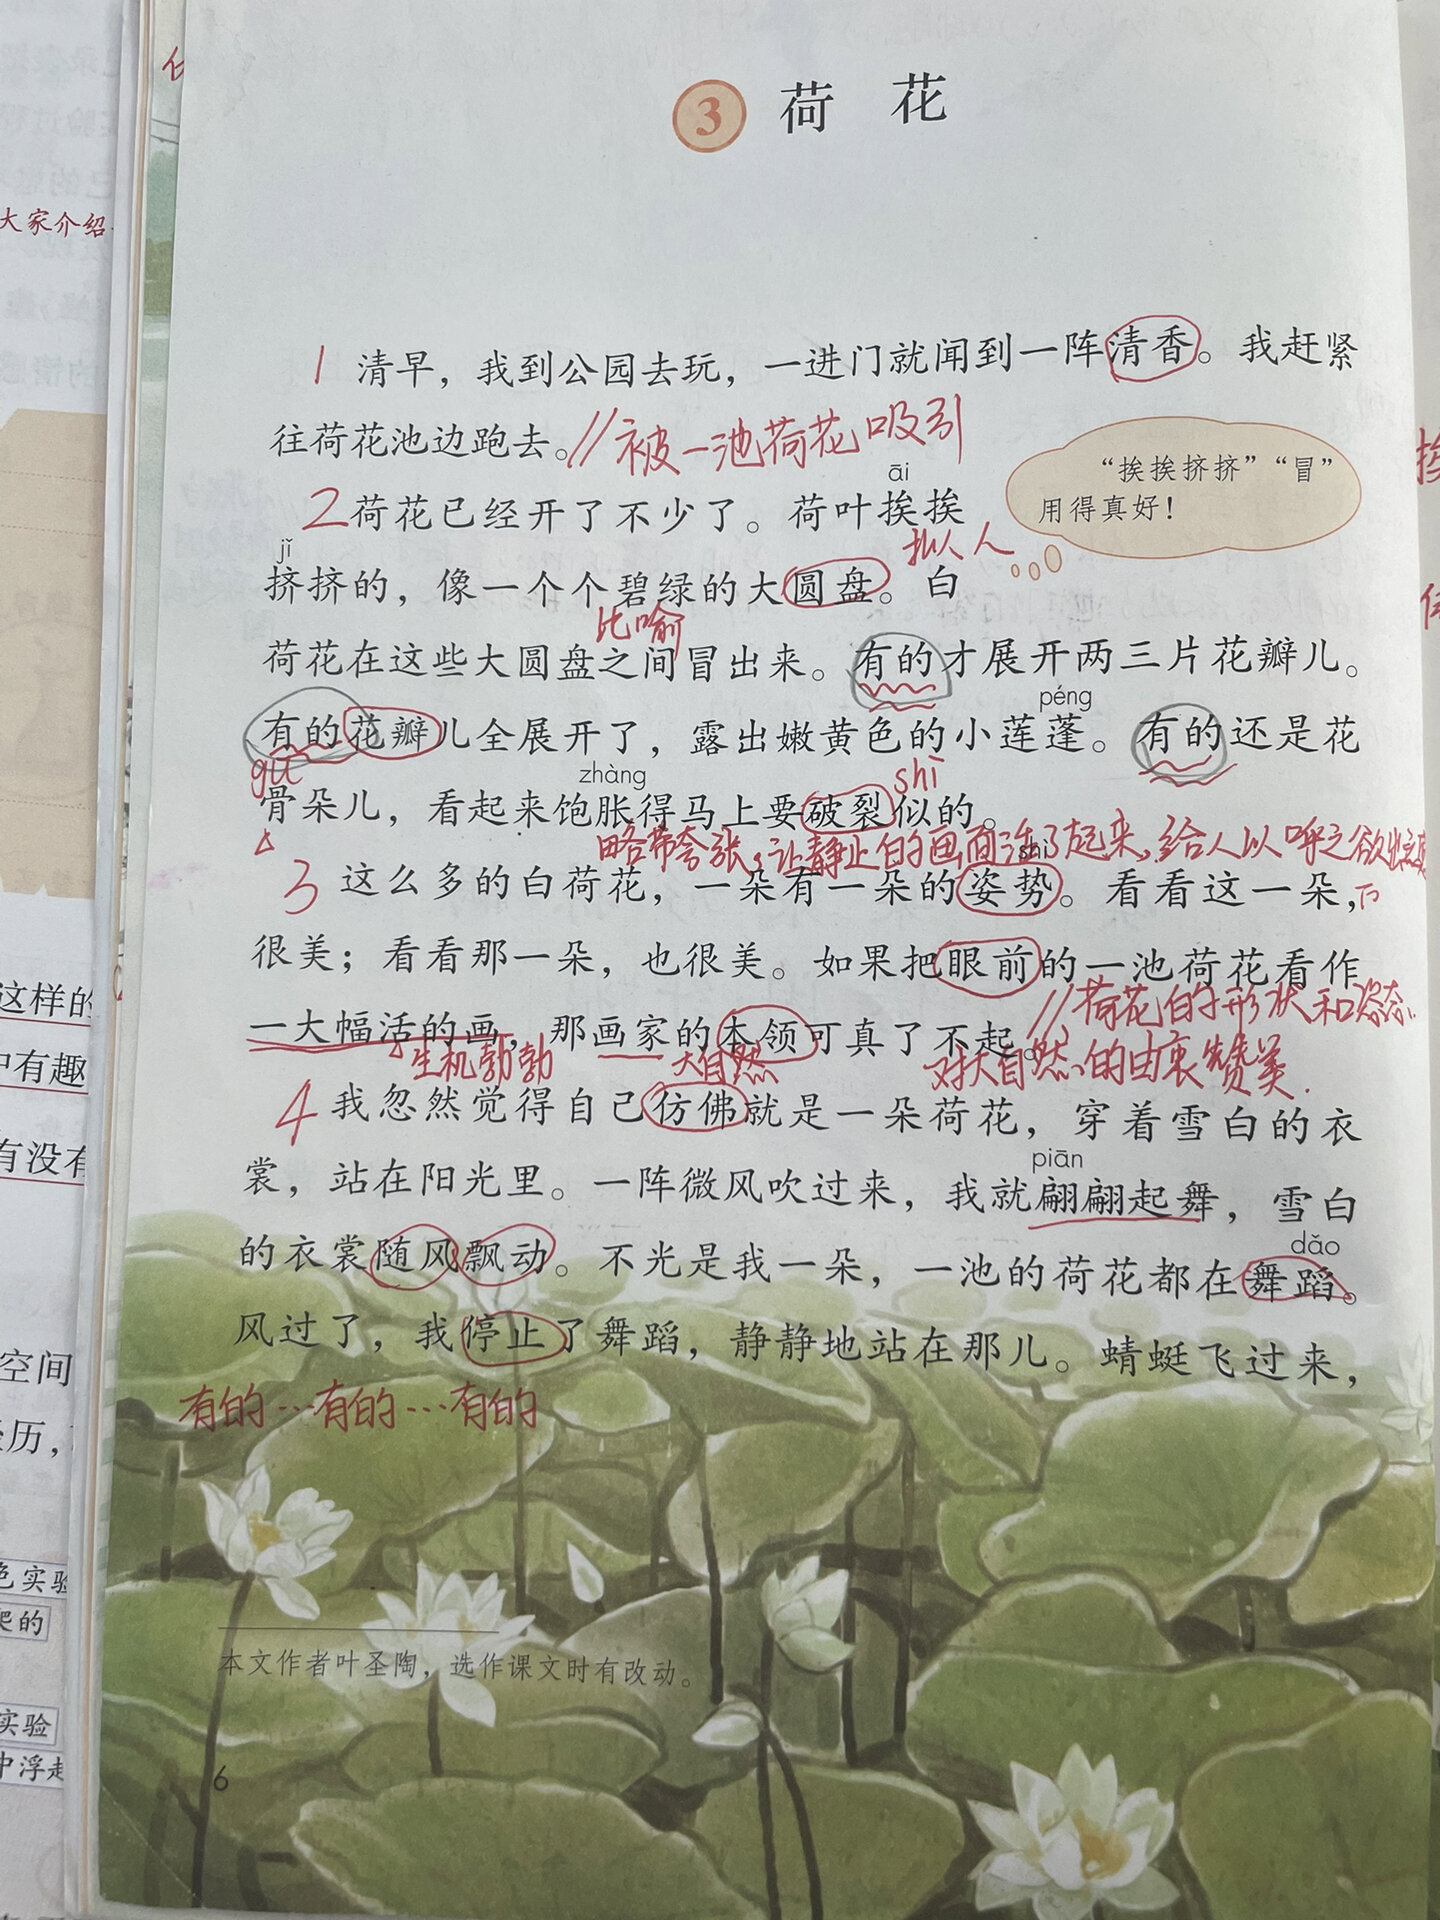 3 荷花
1 清早，我到公园去玩，一进门就闻到一阵清香。我赶紧
往荷花池边跑去。//被一池荷花吸引
“挨挨挤挤”“冒”
用得真好！
āi
2 荷花已经开了不少了。荷叶挨挨
拟人
jǐ
挤挤的，像一个个碧绿的大圆盘。白
比喻
荷花在这些大圆盘之间冒出来。有的才展开两三片花瓣儿。
péng
有的花瓣儿全展开了，露出嫩黄色的小莲蓬。有的还是花
gū
zhàng
shì
骨朵儿，看起来饱胀得马上要破裂似的。
略带夸张，让静止的画面活了起来，给人以呼之欲出之
shì
3 这么多的白荷花，一朵有一朵的姿势。看看这一朵，
很美；看看那一朵，也很美。如果把眼前的一池荷花看作
一大幅活的画，那画家的本领可真了不起。//荷花的形状和姿态
生机勃勃
大自然
对大自然的由衷赞美.
4 我忽然觉得自己仿佛就是一朵荷花，穿着雪白的衣
裳，站在阳光里。一阵微风吹过来，我就翩翩起舞，雪白
piān
的衣裳随风飘动。不光是我一朵，一池的荷花都在舞蹈。
dǎo
风过了，我停止了舞蹈，静静地站在那儿。蜻蜓飞过来，
有的…有的…有的
本文作者叶圣陶，选作课文时有改动。
6
大家介绍
这样的
中有趣
有没有
空间
历，
色实验
爬的
实验
中浮起